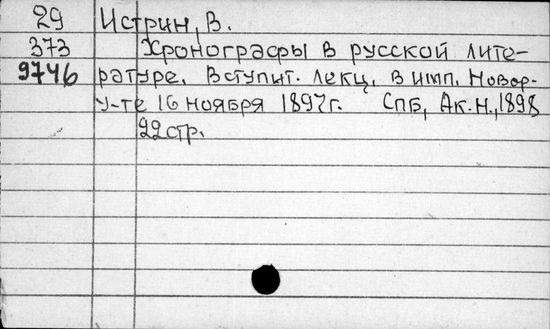 29 Истрин, В.
373 Хронографы в русской лите-
9746 ратуре. Вступит. лекц. в имп. Новор.
у-те 16 ноября 1897г. СПБ, Ак.Н., 1898
22стр.